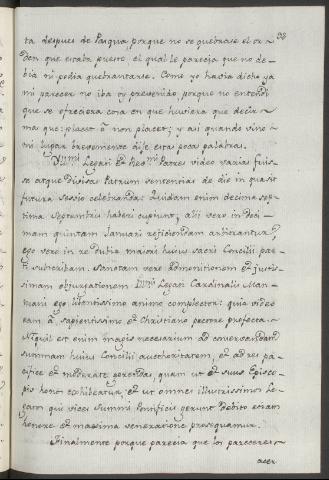 98
ta despues de Pasqua, porque no se quebrase el or-
den que estaba puesto, el qual le parecia que no de-
bia ni podia quebrantarse. Como yo havia dicho ya
mi parecer no iba oy prevenido, porque no entendi
que se ofreciera cosa en que huviera que decir
mas que: placet ò non placet; y asi quando vino
mi lugar brevemente dije estas pocas palabras.
Illmi Legati et Regmi Patres video varias fuis-
se atque divisas Patrum sententias de die in quasit
futura sessio celebranda: Quidam enim decima sep-
tima Septembris haberi cupiunt, alii vero in deci-
mam quintam Januari reficiendam arbitrantur,
ego vero in re dubia maiori huius sacri Concilii par-
ti subscribam. Sanctam vero admonitionem et justis-
simam objurgationem Illmi Legati Cardinalis Man-
tuani ego libentissimo animo complector: quia video
eam à sapientissimo et Christiano pectore profecta.
Niquil est enim magis necesarium ad conservandam
summam huius Concilii aucthoritatem, et ad res pa-
cifice et moderate gerendas, quam ut et suus Episco-
pis honos exhibeatur, et ut omnes illustrissimos Le-
gatos qui vices Summi Pontificis gerunt debito etiam
honore et maxima veneratione prosequamur.
Finalmente porque parecia que los pareceres